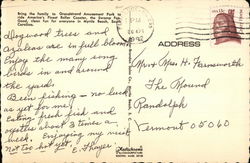 Bring the family to Grandstrand Amusement Park to
ride America's Finest Roller Coaster, the Swamp Fox.
Good, clean fun for everyone in Myrtle Beach, South
Carolina.
Dogwood trees and
Azaleas are in full bloom.
Enjoy the many song
birds in and around
the yard.
Been fishing - no luck
as yet for me.
Eating fresh fish and
oysters about 3 times a
week. Enjoying my visit
not too hot yet. E. Thayer
PM
1982
ADDRESS
Mrs. H. Farnsworth
The Mound
Randolph
Vermont 05060